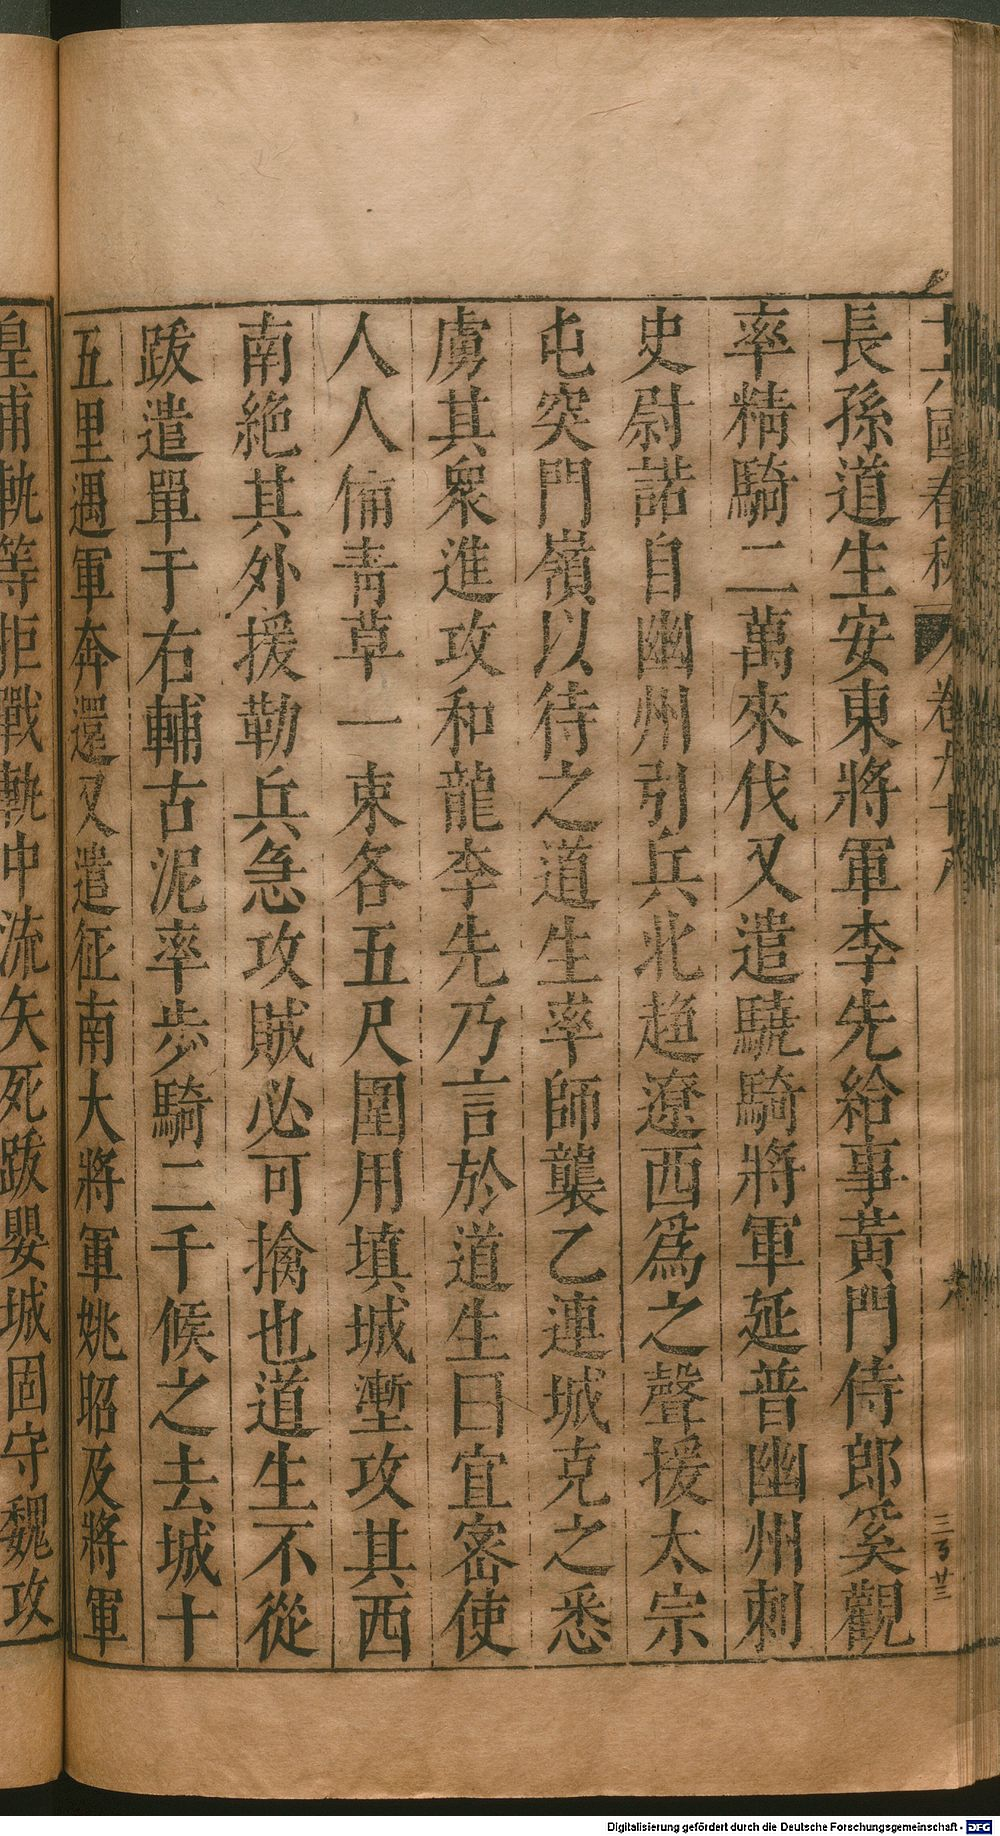 十六國春秋 卷九十八
長孫道生安東將軍李先給事黃門侍郎奚觀
率精騎二萬來伐又遣驍騎將軍延普幽州刺
史尉諾自幽州引兵北趨遼西爲之聲援太宗
屯突門嶺以待之道生率師襲乙連城克之悉
虜其衆進攻和龍李先乃言於道生曰宜密使
人人備青草一束各五尺圍用填城塹攻其西
南絶其外援勒兵急攻賊必可擒也道生不從
跋遣單于右輔古泥率步騎二千候之去城十
五里遇軍奔還又遣征南大將軍姚昭及將軍
皇甫軌等拒戰軌中流矢死跋嬰城固守魏攻
Digitalisierung gefördert durch die Deutsche Forschungsgemeinschaft - DFG